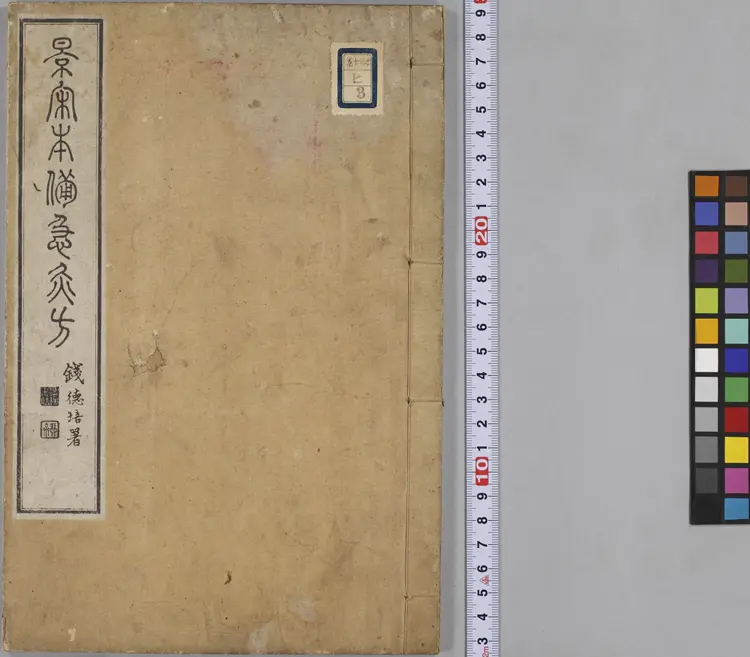 景宋本備急灸方
錢德培署
ヒ
8
9
8
7
6
5
4
3
2
1
20
9
8
7
6
5
4
3
2
1
10
9
8
7
6
5
4
3
2m